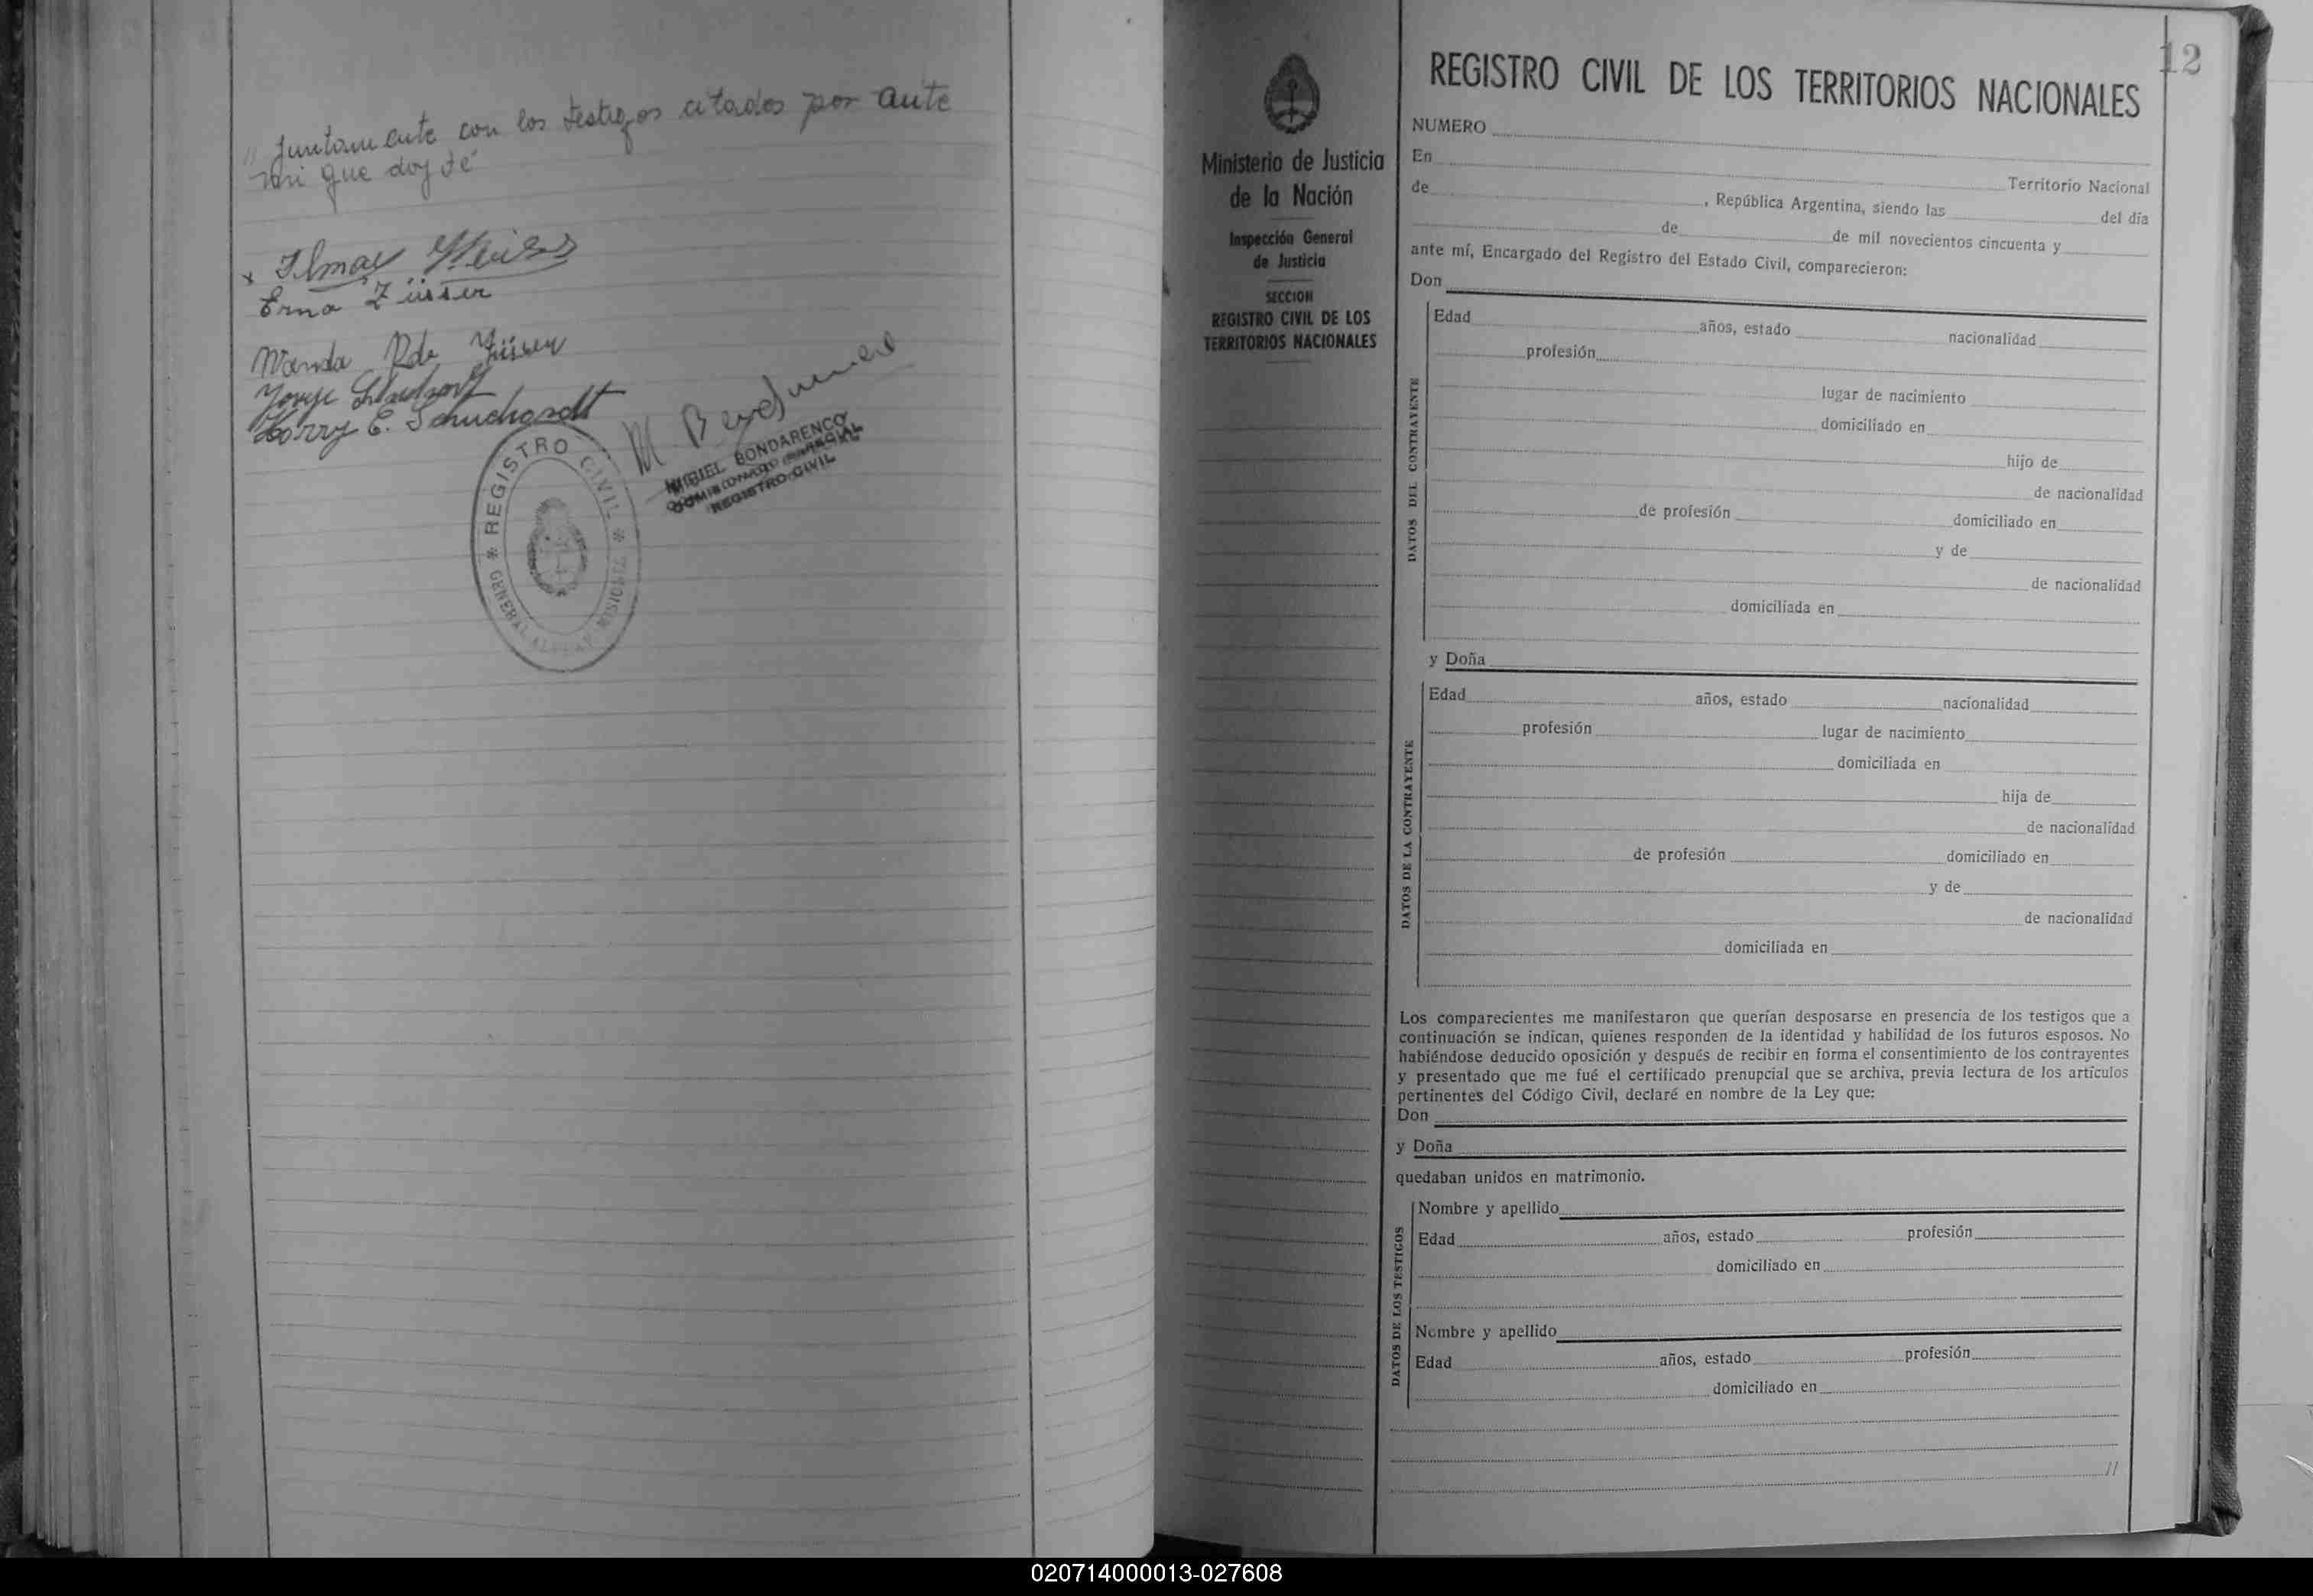 // juntamente con los testigos citados por ante
mi que doy fé
x Ilmar
Erna Züster
Wanda R de
Jorge
Harry E. Schuchardt
M. Bondarenco
MIGUEL BONDARENCO
REGISTRO CIVIL
* REGISTRO CIVIL * GENERAL ALVEAR MISIONES
12
REGISTRO CIVIL DE LOS TERRITORIOS NACIONALES
Ministerio de Justicia
de la Nación
Inspección General
de Justicia
SECCION
REGISTRO CIVIL DE LOS
TERRITORIOS NACIONALES
NUMERO
En Territorio Nacional
de , República Argentina, siendo las del día
de de mil novecientos cincuenta y
ante mí, Encargado del Registro del Estado Civil, comparecieron:
Don
DATOS DEL CONTRAYENTE
Edad años, estado nacionalidad
profesión
lugar de nacimiento
domiciliado en
hijo de
de nacionalidad
de profesión domiciliado en
y de
de nacionalidad
domiciliada en
y Doña
DATOS DE LA CONTRAYENTE
Edad años, estado nacionalidad
profesión lugar de nacimiento
domiciliada en
hija de
de nacionalidad
de profesión domiciliado en
y de
de nacionalidad
domiciliada en
Los comparecientes me manifestaron que querían desposarse en presencia de los testigos que a
continuación se indican, quienes responden de la identidad y habilidad de los futuros esposos. No
habiéndose deducido oposición y después de recibir en forma el consentimiento de los contrayentes
y presentado que me fué el certificado prenupcial que se archiva, previa lectura de los artículos
pertinentes del Código Civil, declaré en nombre de la Ley que:
Don
y Doña
quedaban unidos en matrimonio.
DATOS DE LOS TESTIGOS
Nombre y apellido
Edad años, estado profesión
domiciliado en
Nombre y apellido
Edad años, estado profesión
domiciliado en
//
020714000013-027608